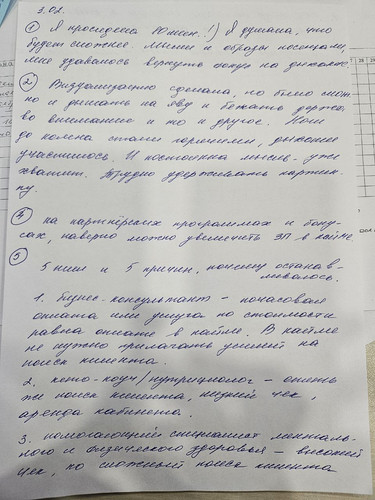 3.02.
① Я просидела 20 мин. !) Я думала, что
будет сложнее. Мысли и образы посещали,
мне удавалось вернуть фокус на дыхание.
② Визуализацию сделала, но было слож-
но и дышать на яву и бежать держа
во внимании и то и другое. Ноги
до колена стали горячими, дыхание
участилось. И постоянна мысль - уже
хватит. Трудно удерживать картин-
ку.
④ на партнёрских программах и бону-
сах, наверно можно увеличить ЗП в найме.
⑤
5 ниш и 5 причин, почему останав-
ливалось.
1. бизнес-консультант - почасовая
оплата или услуга по стоимости
равна оплате в найме. В найме
не нужно прилагать усилий на
поиск клиента.
2. кето-коуч/нутрициолог - опять
же поиск клиента, низкий чек,
аренда кабинета.
3. помогающий специалист менталь-
ного и физического здоровья - высокий
чек, но сложный поиск клиента